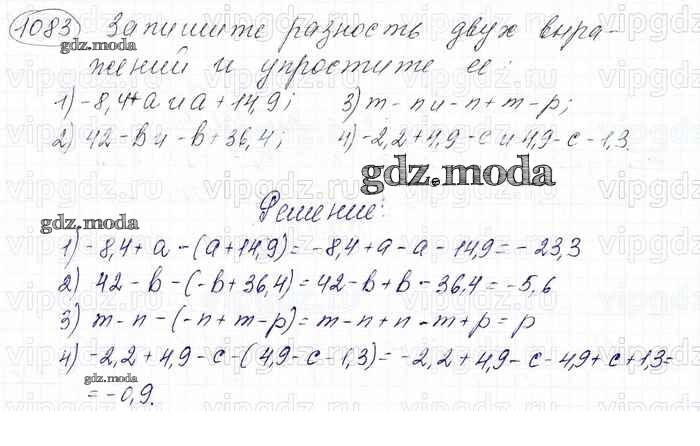 1083 Запишите разность двух выра-
gdz.moda
жений и упростите ее:
1) -8,4+a и a+14,9; 3) m-n и -n+m-p;
2) 42-b и -b+36,4; 4) -2,2+4,9-c и 4,9-c-1,3.
gdz.moda
Решение:
gdz.moda
1) -8,4+a-(a+14,9)=-8,4+a-a-14,9=-23,3
2) 42-b-(-b+36,4)=42-b+b-36,4=-5,6
3) m-n-(-n+m-p)=m-n+n-m+p=p
4) -2,2+4,9-c-(4,9-c-1,3)=-2,2+4,9-c-4,9+c+1,3=
gdz.moda
=-0,9.